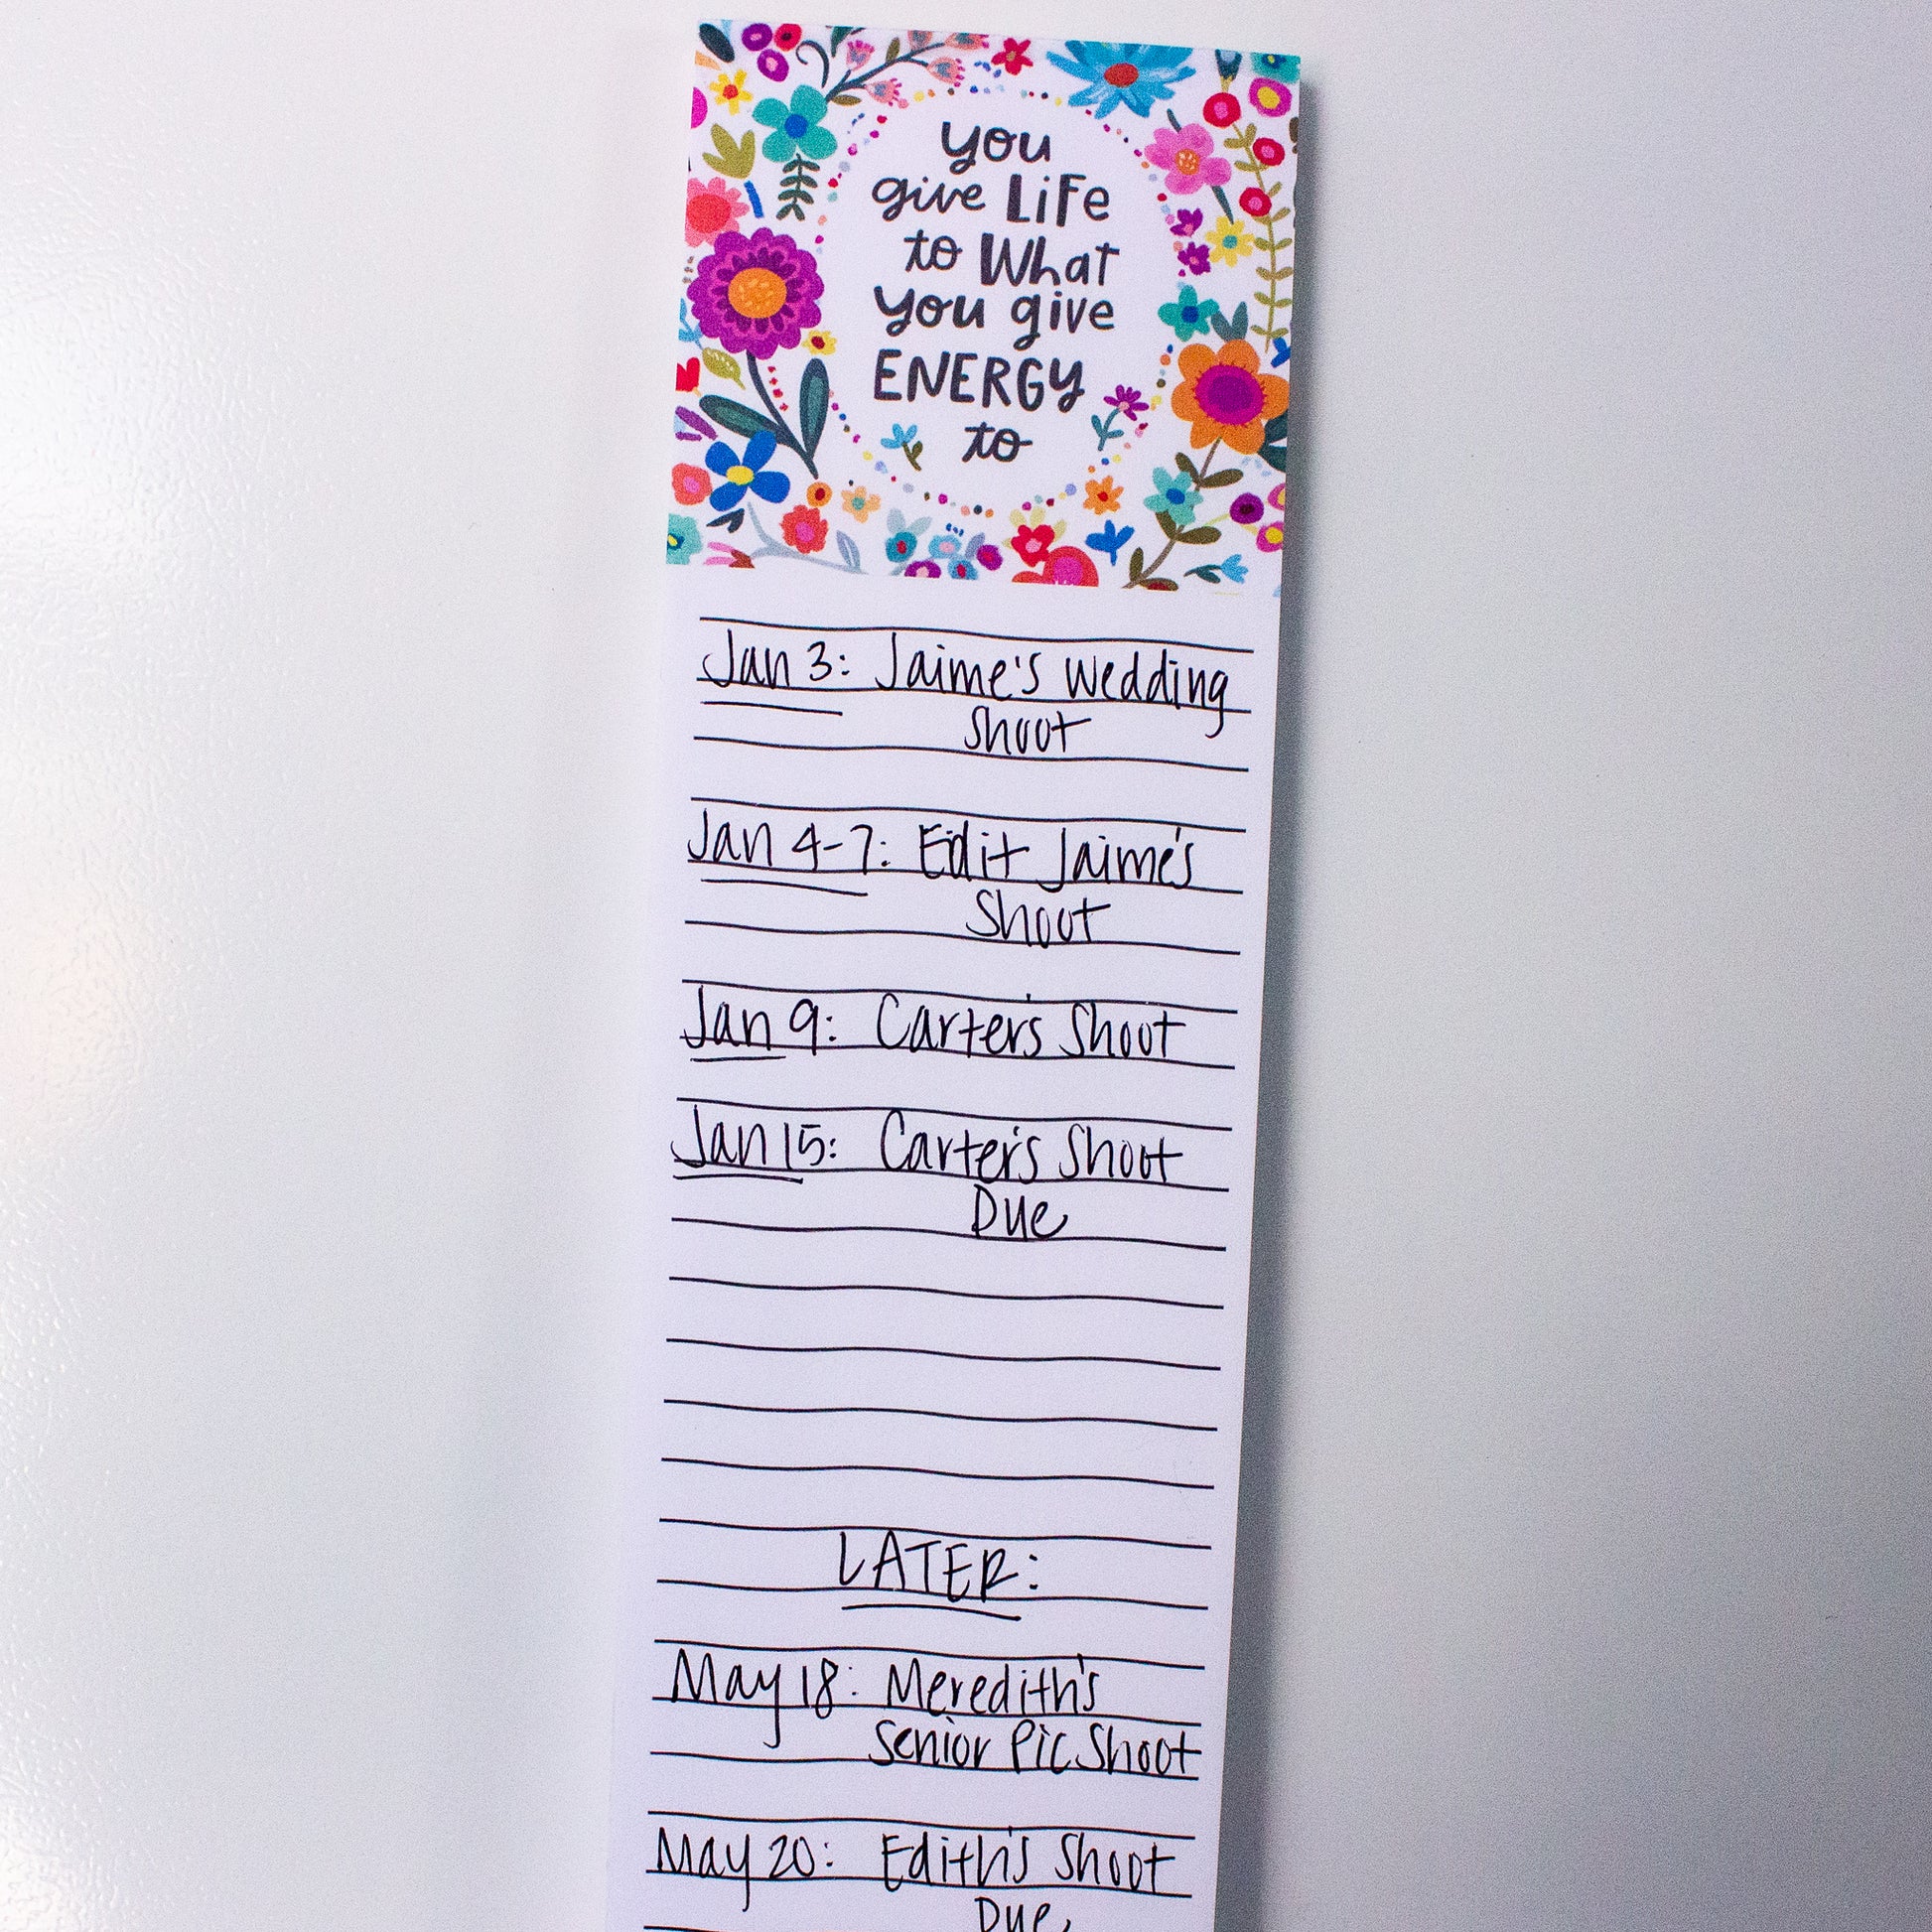 you
give LiFe
to What
you give
ENERGy
to
Jan 3: Jaime's Wedding
Shoot
Jan 4-7: Edit Jaime's
Shoot
Jan 9: Carter's Shoot
Jan 15: Carter's Shoot
Due
LATER:
May 18: Meredith's
Senior Pic Shoot
May 20: Edith's Shoot
Due